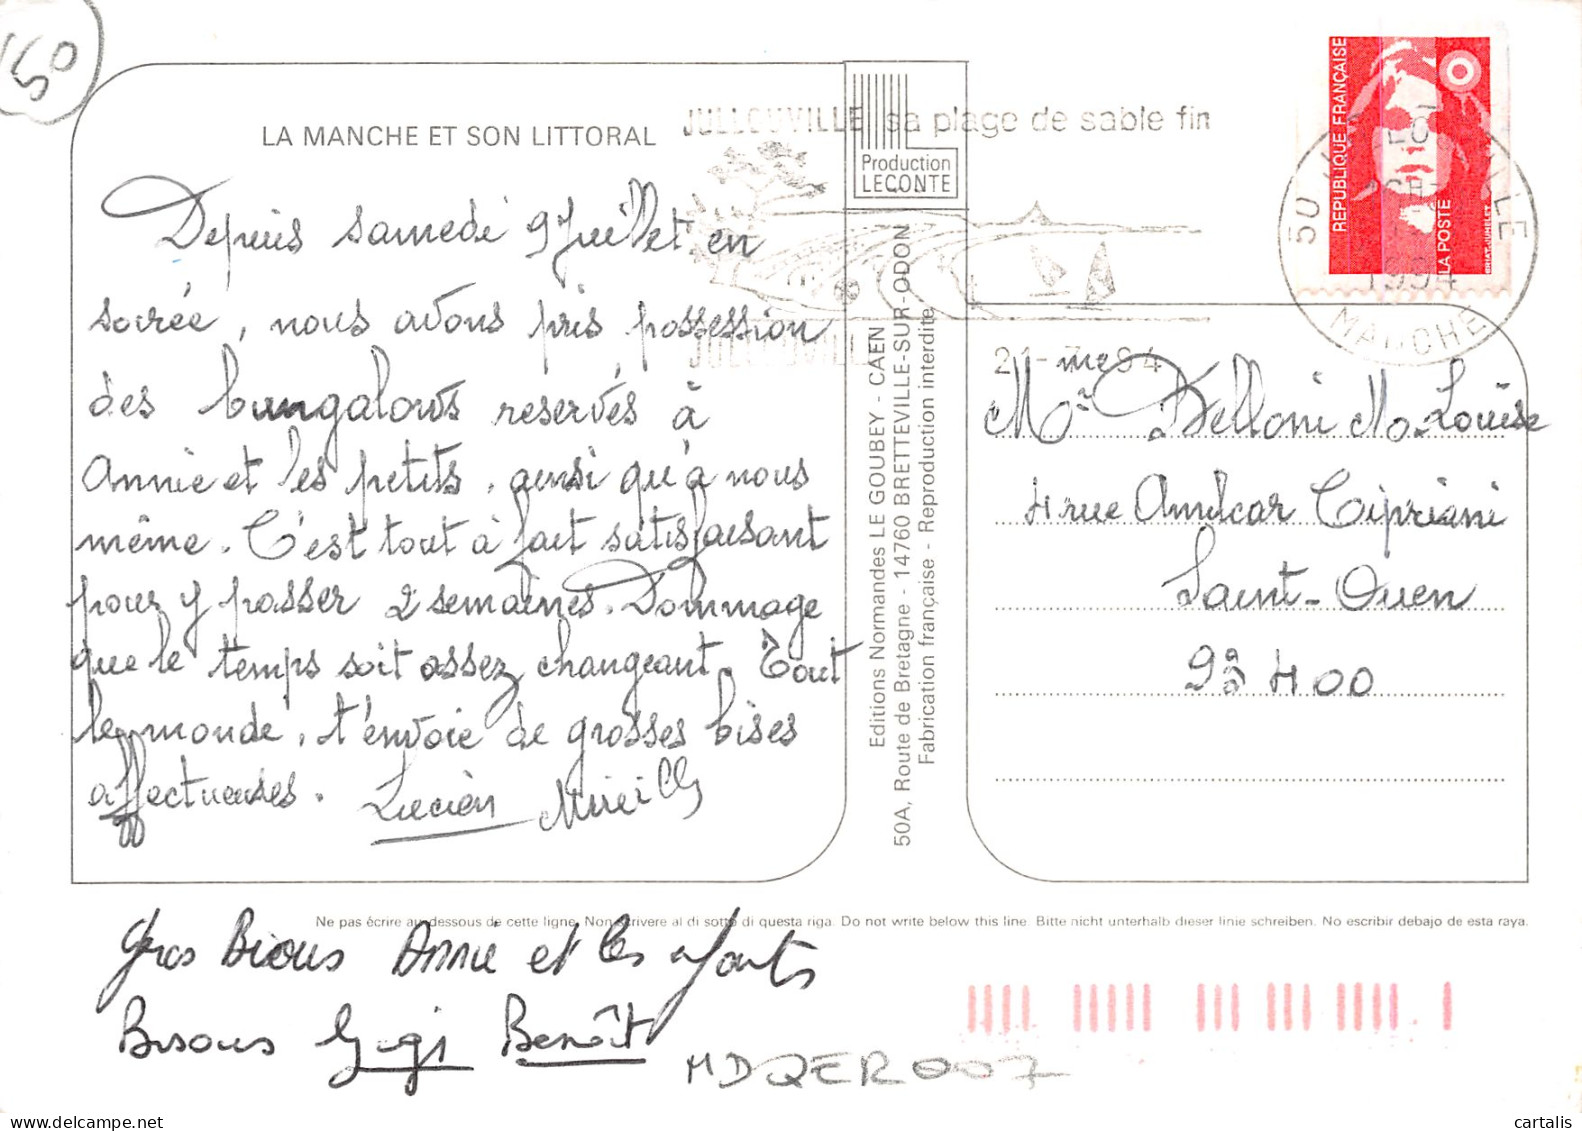 50
LA MANCHE ET SON LITTORAL
JULLOUVILLE sa plage de sable fin
Production
LECONTE
REPUBLIQUE FRANÇAISE
LA POSTE
BRIAT-JUMELET
50 JULLOUVILLE
1994
MANCHE
JULLOUVILLE
Depuis samedi 9 Juillet en
soirée, nous avons pris possession
des bungalows reservés à
Annie et les petits, ainsi qu'à nous
même. C'est tout à fait satisfaisant
pour y passer 2 semaines. Dommage
que le temps soit assez changeant. Tout
le monde, t'envoie de grosses bises
affectueuses. Lucien Mireille
Gros Bisous Annie et les enfants
Bisous Gigi Benoît
Editions Normandes LE GOUBEY - CAEN
50A, Route de Bretagne - 14760 BRETTEVILLE-SUR-ODON
Fabrication française - Reproduction interdite
Me Delloni M. Louise
4 rue Amilcar Cipriani
Saint-Ouen
93400
Ne pas écrire au-dessous de cette ligne. Non scrivere al di sotto di questa riga. Do not write below this line. Bitte nicht unterhalb dieser linie schreiben. No escribir debajo de esta raya.
MDQER007
delcampe.net
cartalis